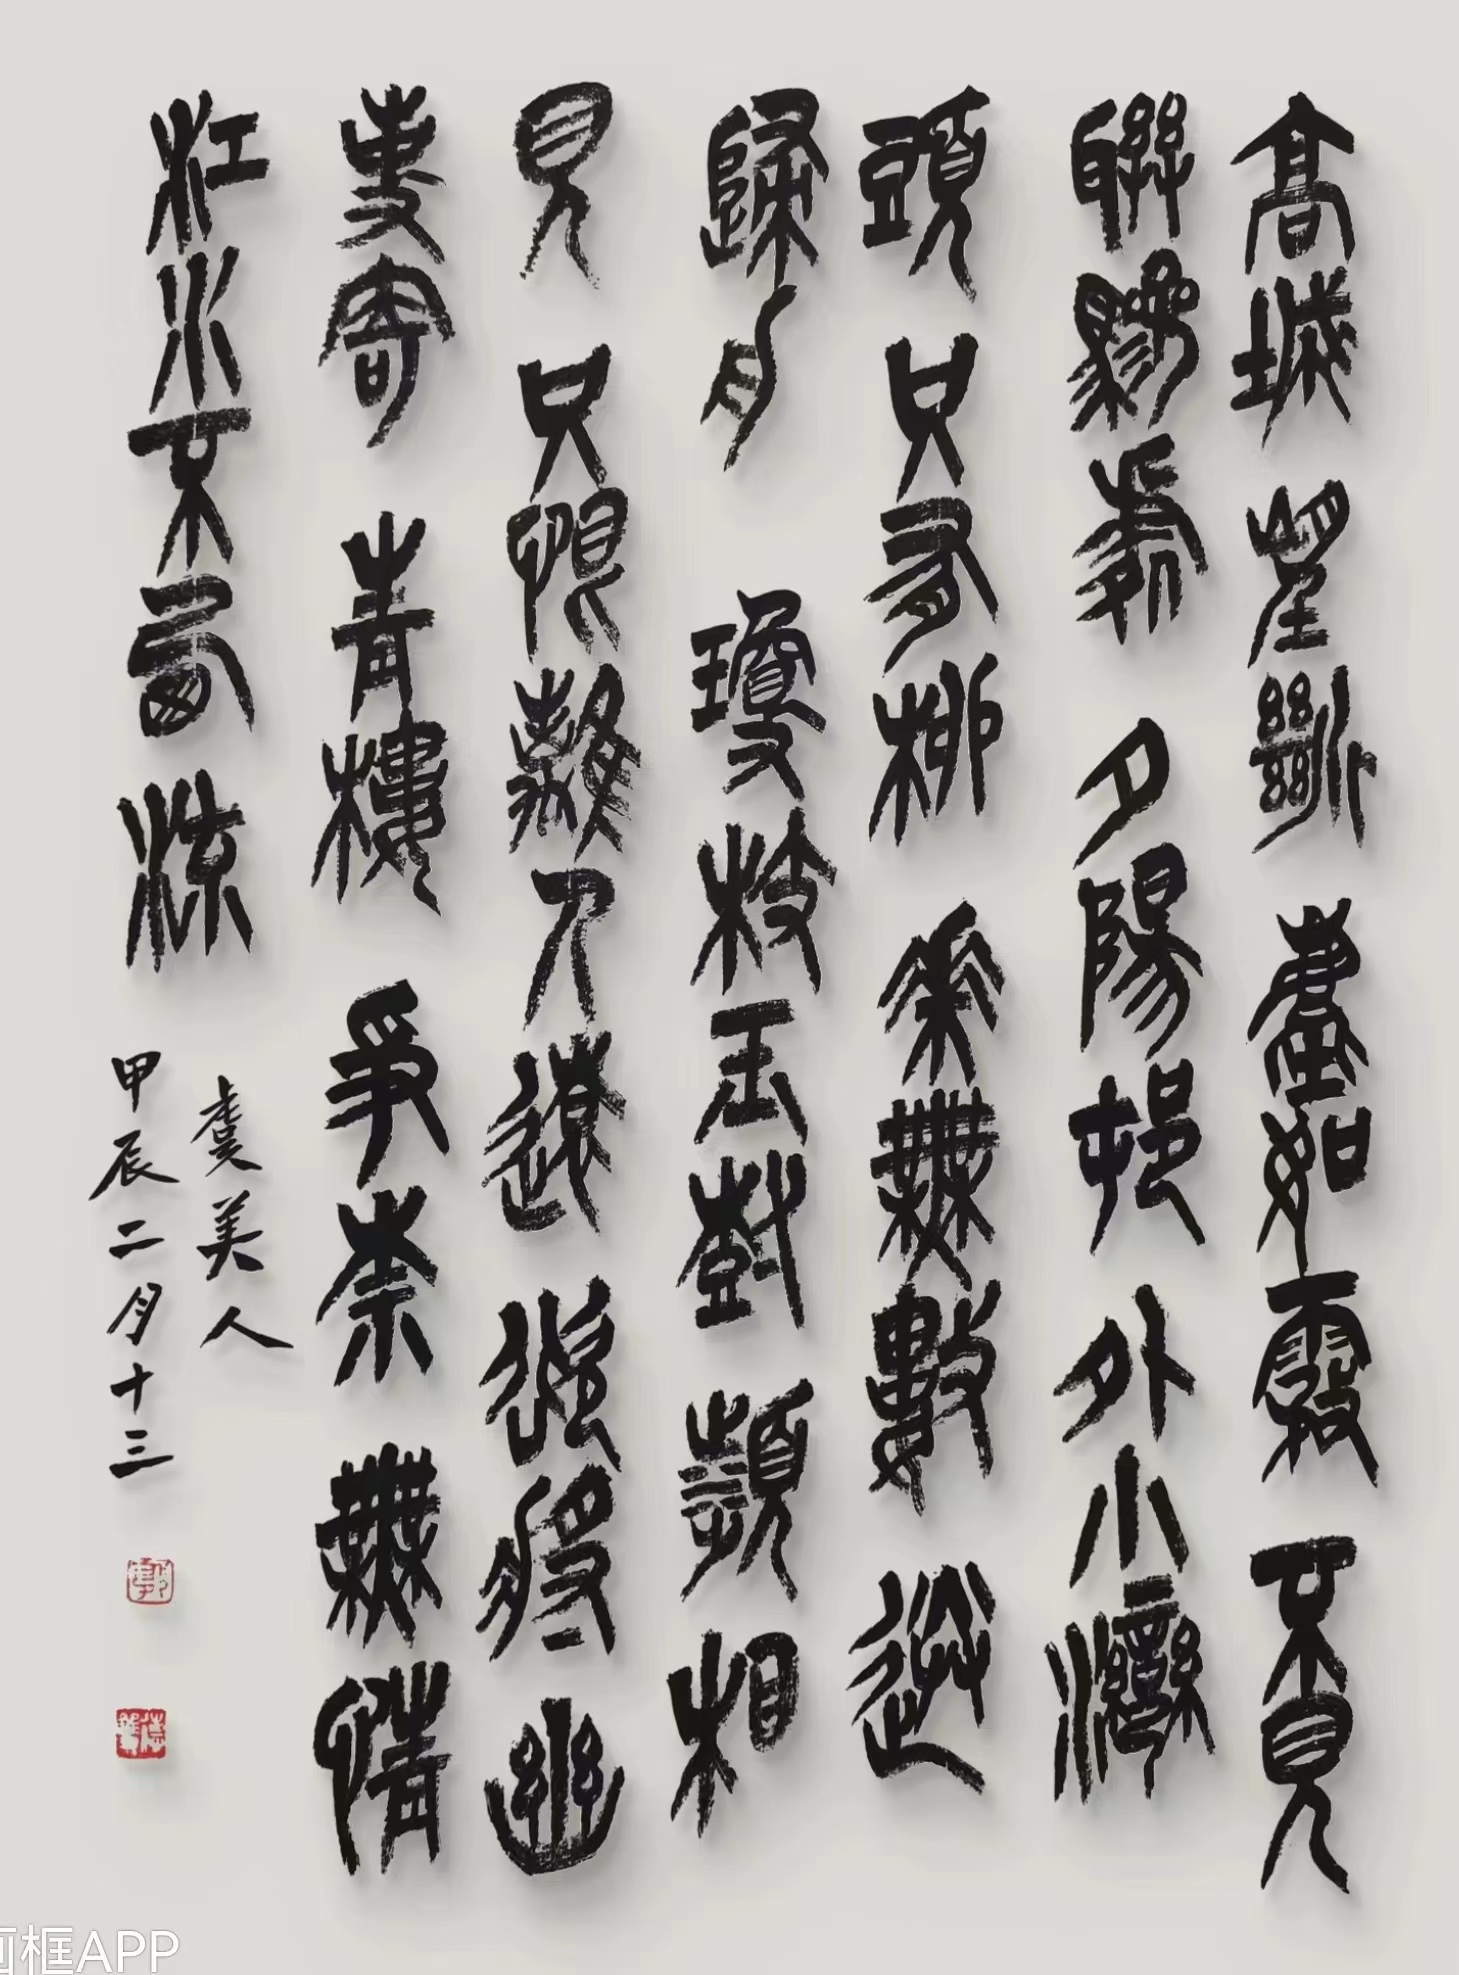 高城望斷塵如霧不見
聯驂處夕陽邨外小灣
頭只有柳華無數送
歸舟瓊枝玉樹頻相
見只恨離人遠欲將幽
事寄青樓爭奈無情
江水不西流
虞美人
甲辰二月十三
画框APP